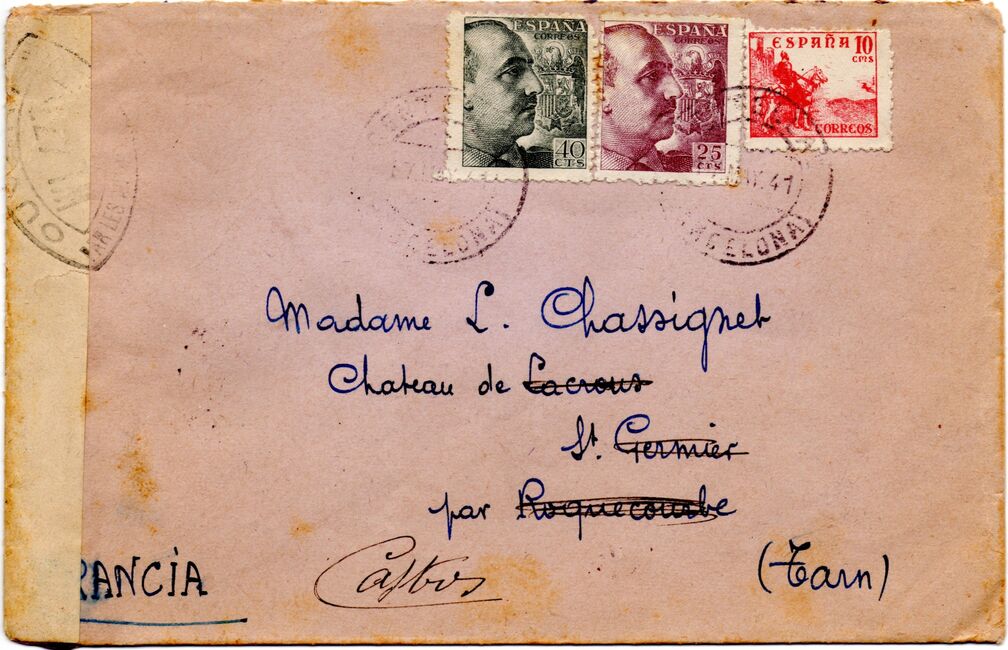 ESPAÑA
CORREOS
40
CTS
ESPAÑA
CORREOS
25
CTS
ESPAÑA 10
CMS
CORREOS
41
CELONA)
RCELONA)
Madame L. Chassignet
Chateau de Lacrous
St. Germier
par Roquecourbe
(Tarn)
Castres
RANCIA
OU
PAR LES